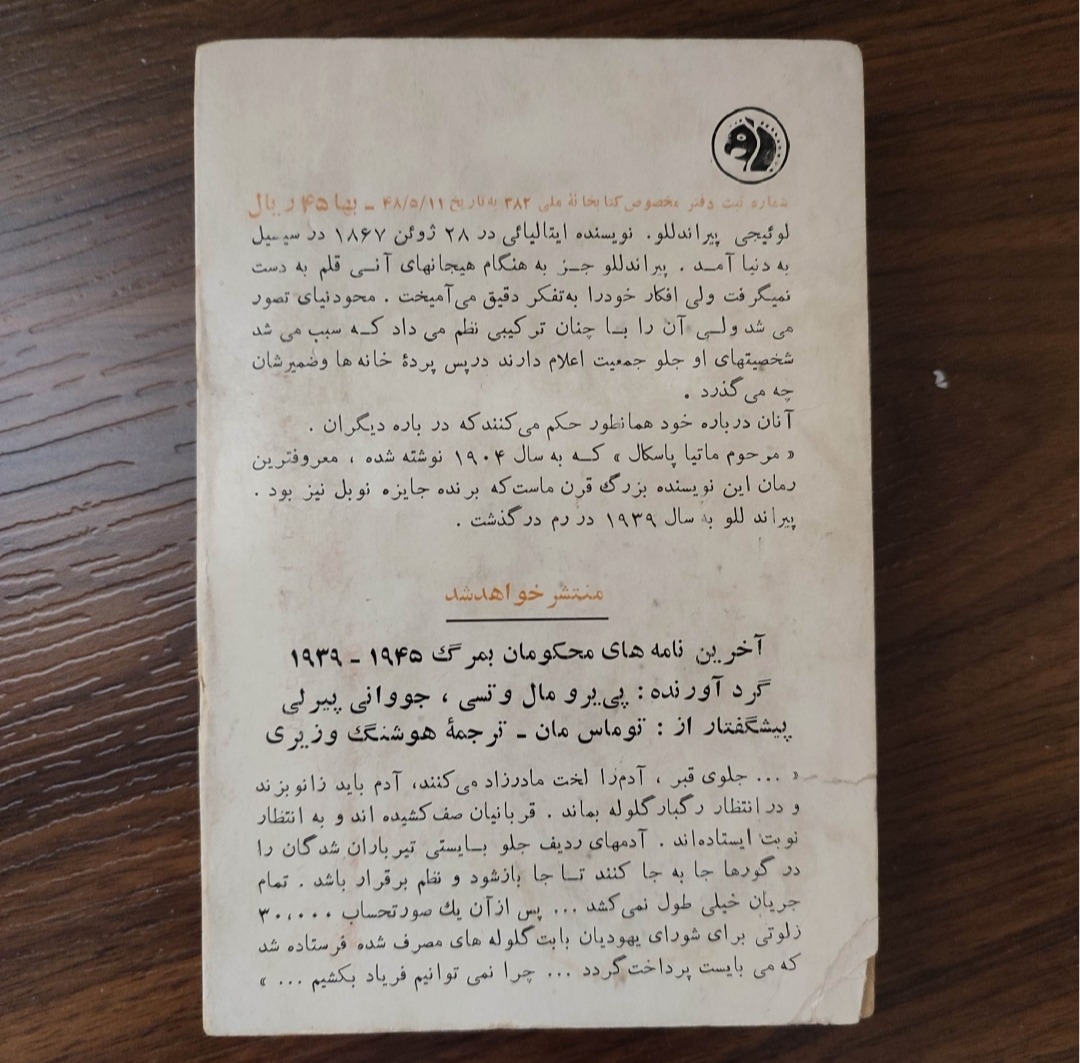 شماره ثبت دفتر مخصوص کتابخانهٔ ملی ۳۸۲ به تاریخ ۴۸/۵/۱۱ ــ بها ۴۵ ریال
لوئیجی پیراندللو. نویسنده ایتالیائی در ۲۸ ژوئن ۱۸۶۷ در سیسیل
به دنیا آمـد . پیراندللو جـز به هنگام هیجانهای آنـی قلم به دست
نمیگرفت ولی افکار خودرا به‌تفکر دقیق می‌آمیخت . محودنیای تصور
می شد ولـی آن را بـا چنان ترکیبی نظم می داد کـه سبب می شد
شخصیتهای او جلو جمعیت اعلام دارند درپس پردهٔ خانه ها وضمیرشان
چه می‌گذرد .
آنان درباره خود همانطور حکم می‌کنند که در باره دیگران .
« مرحوم ماتیا پاسکال » کـه به سال ۱۹۰۴ نوشته شده ، معروفترین
رمان این نویسنده بزرگ قرن ماست که برنده جایزه نوبل نیز بود .
پیراند للو به سال ۱۹۳۹ در رم درگذشت .
منتشر خواهدشد
آخرین نامه های محکومان بمرگ ۱۹۴۵ ــ ۱۹۳۹
گرد آورنده : پی‌یرو مال وتسی ، جووانی پیرلی
پیشگفتار از : توماس مان ــ ترجمهٔ هوشنگ وزیری
« ... جلوی قبر ، آدم‌را لخت مادرزاد می‌کنند، آدم باید زانو بزند
و در انتظار رگبار گلوله بماند . قربانیان صف کشیده اند و به انتظار
نوبت ایستاده‌اند . آدمهای ردیف جلو بـایستی تیرباران شدگان را
در گورها جا به جا کنند تـا جا بازشود و نظم برقرار باشد . تمام
جریان خیلی طول نمی‌کشد ... پس ازآن یك صورتحساب ۳۰،۰۰۰
زلوتی برای شورای یهودیان بابت گلوله های مصرف شده فرستاده شد
که می بایست پرداخت گردد ... چرا نمی توانیم فریاد بکشیم ... »